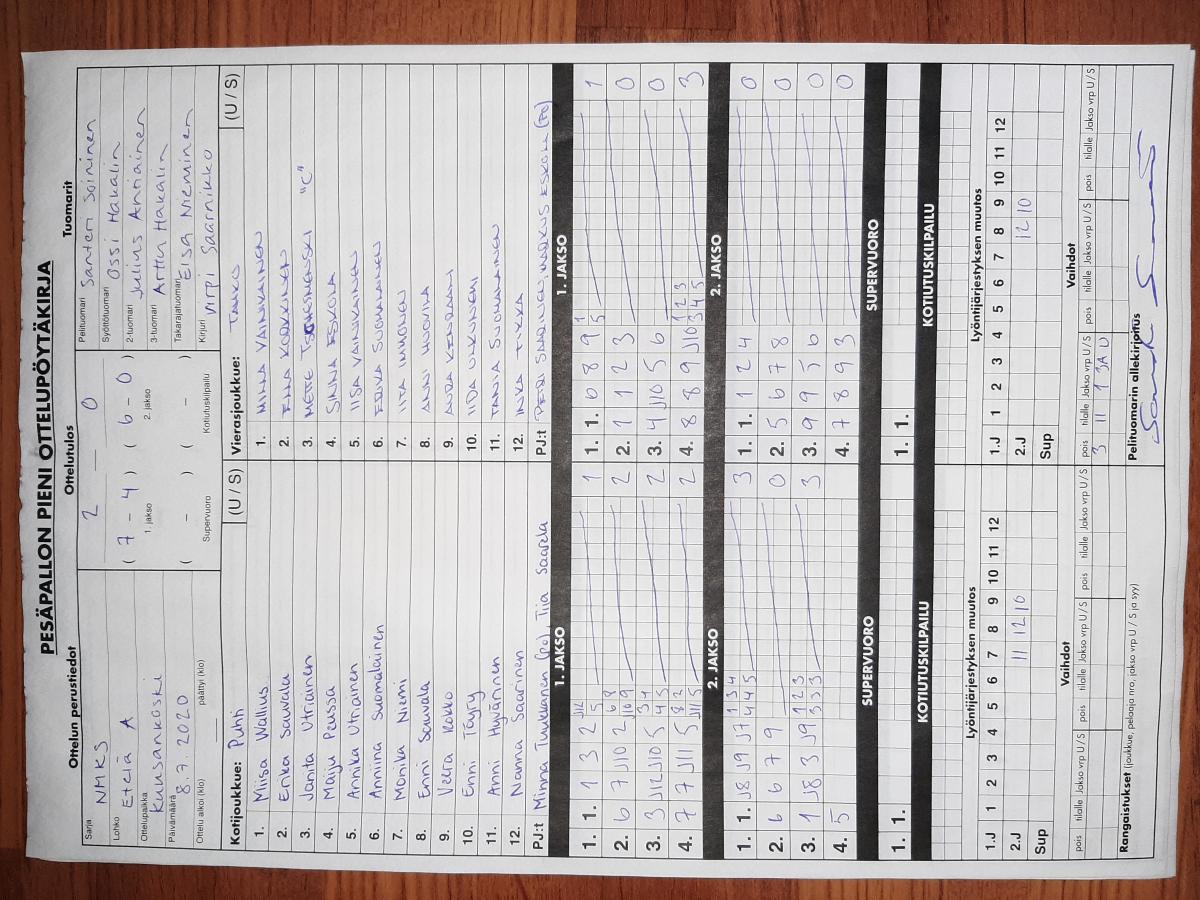 PESÄPALLON PIENI OTTELUPÖYTÄKIRJA
Ottelun perustiedot
Sarja NMKS
Lohko Etelä A
Ottelupaikka Kuusankoski
Päivämäärä 8.7.2020
Ottelu alkoi (klo) päättyi (klo)
Ottelutulos
2 — 0
( 7 – 4 ) ( 6 – 0 )
1. jakso 2. jakso
( – ) ( – )
Supervuoro Kotiutuskilpailu
Tuomarit
Pelituomari Santeri Soininen
Syöttötuomari Ossi Hakalin
2-tuomari Julius Antiainen
3-tuomari Arttu Hakalin
Takarajatuomari Elsa Nieminen
Kirjuri Virpi Saarnikko
Kotijoukkue: Puhti (U / S)
1. Miisa Wallius
2. Erika Sauvala
3. Janita Utriainen
4. Maiju Peussa
5. Annika Utriainen
6. Anniina Suomalainen
7. Monika Niemi
8. Enni Sauvala
9. Veera Kokko
10. Enni Täyry
11. Anni Hyvärinen
12. Nanna Saarinen
PJ:t Minna Tuukkanen (po), Tiia Saarela
Vierasjoukkue: TAHKO (U / S)
1. MILKA VAINIKAINEN
2. KORKKINEN
3. METTE "C"
4. SINNA ESKOLA
5. IISA VAINIKAINEN
6. ERIKA SUOMALAINEN
7. IITA IMMONEN
8. ANNI HUOVILA
9.
10. IIDA
11. TANJA SUOMALAINEN
12. INKA
PJ:t PETRI SAARINEN, MARKUS ESKOLA (PO)
1. JAKSO
1. 1. 1 3 2 J12 5 1
2. 6 7 J10 2 6 8 J10 9 2
3. 3 J12 J10 5 3 4 4 5 2
4. 7 7 J11 5 8 2 J11 5 2
2. JAKSO
1. 1. J8 J9 J7 1 3 4 4 4 5 3
2. 6 6 7 9 0
3. 1 J8 3 J9 1 2 3 3 3 3 3
4. 5
SUPERVUORO
1. 1.
KOTIUTUSKILPAILU
1. JAKSO
1. 1. 6 8 9 1 5 1
2. 1 1 2 3 0
3. 4 J10 5 6 0
4. 8 8 9 J10 1 2 3 3 4 5 3
2. JAKSO
1. 1. 1 2 4 0
2. 5 6 7 8 0
3. 9 9 5 6 0
4. 7 8 9 3 0
SUPERVUORO
1. 1.
KOTIUTUSKILPAILU
Lyöntijärjestyksen muutos
1.J 1 2 3 4 5 6 7 8 9 10 11 12
2.J 11 12 10
Sup
Vaihdot
pois tilalle Jakso vrp U / S pois tilalle Jakso vrp U / S pois tilalle Jakso vrp U / S
Rangaistukset (joukkue, pelaaja nro, jakso vrp U / S ja syy)
Lyöntijärjestyksen muutos
1.J 1 2 3 4 5 6 7 8 9 10 11 12
2.J 12 10
Sup
Vaihdot
pois tilalle Jakso vrp U / S pois tilalle Jakso vrp U / S pois tilalle Jakso vrp U / S
3 11 1 3A U
Pelituomarin allekirjoitus